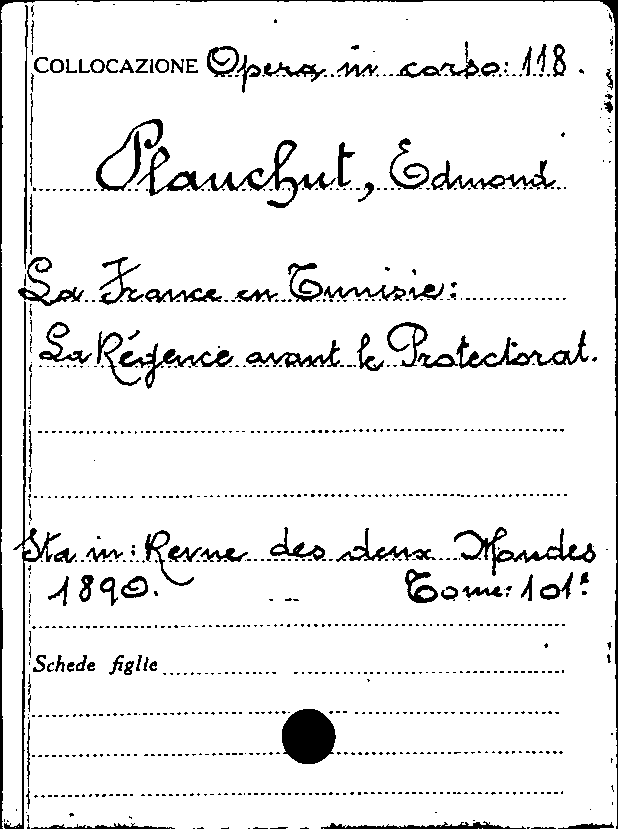 COLLOCAZIONE Opera in corso: 118.
Plauchut, Edmond
La France en Tunisie:
La Régence avant le Protectorat.
Sta in: Revue des deux Mondes
1890. Tome: 101º
Schede figlie